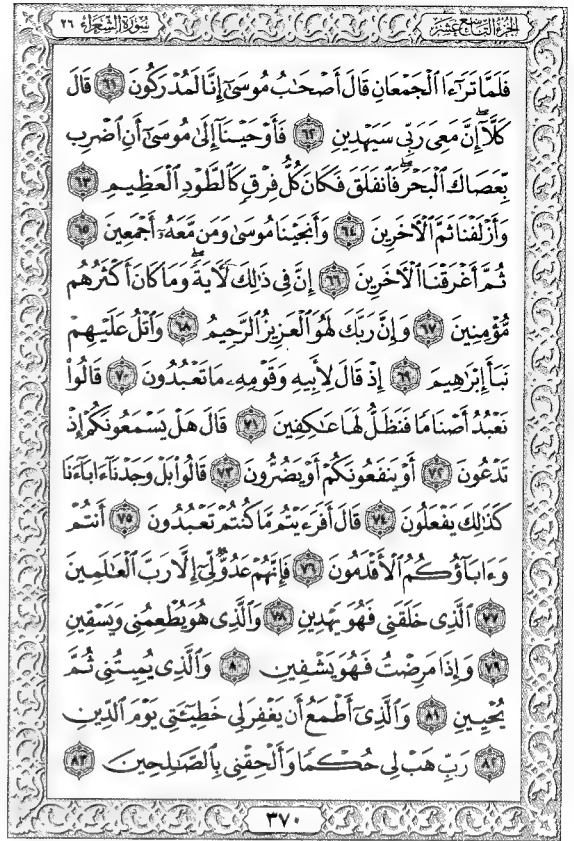 سُورَةُ الشُّعَرَاء ٢٦
الجزء التاسع عشر
فَلَمَّا تَرَٰٓءَا ٱلْجَمْعَانِ قَالَ أَصْحَٰبُ مُوسَىٰٓ إِنَّا لَمُدْرَكُونَ ٦١ قَالَ
كَلَّآ ۖ إِنَّ مَعِىَ رَبِّى سَيَهْدِينِ ٦٢ فَأَوْحَيْنَآ إِلَىٰ مُوسَىٰٓ أَنِ ٱضْرِب
بِّعَصَاكَ ٱلْبَحْرَ ۖ فَٱنفَلَقَ فَكَانَ كُلُّ فِرْقٍ كَٱلطَّوْدِ ٱلْعَظِيمِ ٦٣
وَأَزْلَفْنَا ثَمَّ ٱلْءَاخَرِينَ ٦٤ وَأَنجَيْنَا مُوسَىٰ وَمَن مَّعَهُۥٓ أَجْمَعِينَ ٦٥
ثُمَّ أَغْرَقْنَا ٱلْءَاخَرِينَ ٦٦ إِنَّ فِى ذَٰلِكَ لَءَايَةً ۖ وَمَا كَانَ أَكْثَرُهُم
مُّؤْمِنِينَ ٦٧ وَإِنَّ رَبَّكَ لَهُوَ ٱلْعَزِيزُ ٱلرَّحِيمُ ٦٨ وَٱتْلُ عَلَيْهِمْ
نَبَأَ إِبْرَٰهِيمَ ٦٩ إِذْ قَالَ لِأَبِيهِ وَقَوْمِهِۦ مَا تَعْبُدُونَ ٧٠ قَالُوا۟
نَعْبُدُ أَصْنَامًا فَنَظَلُّ لَهَا عَٰكِفِينَ ٧١ قَالَ هَلْ يَسْمَعُونَكُمْ إِذْ
تَدْعُونَ ٧٢ أَوْ يَنفَعُونَكُمْ أَوْ يَضُرُّونَ ٧٣ قَالُوا۟ بَلْ وَجَدْنَآ ءَابَآءَنَا
كَذَٰلِكَ يَفْعَلُونَ ٧٤ قَالَ أَفَرَءَيْتُم مَّا كُنتُمْ تَعْبُدُونَ ٧٥ أَنتُمْ
وَءَابَآؤُكُمُ ٱلْأَقْدَمُونَ ٧٦ فَإِنَّهُمْ عَدُوٌّ لِّىٓ إِلَّا رَبَّ ٱلْعَٰلَمِينَ
٧٧ ٱلَّذِى خَلَقَنِى فَهُوَ يَهْدِينِ ٧٨ وَٱلَّذِى هُوَ يُطْعِمُنِى وَيَسْقِينِ
٧٩ وَإِذَا مَرِضْتُ فَهُوَ يَشْفِينِ ٨٠ وَٱلَّذِى يُمِيتُنِى ثُمَّ
يُحْيِينِ ٨١ وَٱلَّذِىٓ أَطْمَعُ أَن يَغْفِرَ لِى خَطِيٓـَٔتِى يَوْمَ ٱلدِّينِ
٨٢ رَبِّ هَبْ لِى حُكْمًا وَأَلْحِقْنِى بِٱلصَّٰلِحِينَ ٨٣
٣٧٠